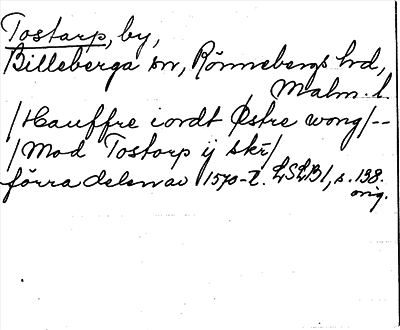 Tostarp, by,
Billeberga sn, Rönnebergs hrd,
Malm. l.
/Hauffre iordt Østre wong/--
/Mod Tostorp ij skr/
förra delen av 1570-t. LSLB1, s. 138.
orig.